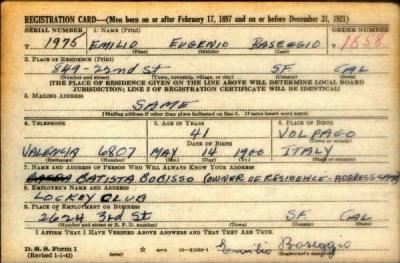 REGISTRATION CARD—(Men born on or after February 17, 1897 and on or before December 31, 1921)
SERIAL NUMBER 1. NAME (Print) ORDER NUMBER
T 1975 EMILIO EUGENIO BASEGGIO T 1658
(First) (Middle) (Last)
2. PLACE OF RESIDENCE (Print)
849-22nd St SF CAL
(Number and street) (Town, township, village, or city) (County) (State)
[THE PLACE OF RESIDENCE GIVEN ON THE LINE ABOVE WILL DETERMINE LOCAL BOARD
JURISDICTION; LINE 2 OF REGISTRATION CERTIFICATE WILL BE IDENTICAL]
3. MAILING ADDRESS
SAME
[Mailing address if other than place indicated on line 2. If same insert word same]
4. TELEPHONE 5. AGE IN YEARS 6. PLACE OF BIRTH
41 VOLPAGO
DATE OF BIRTH (Town or county)
VALENCIA 6807 MAY 14 1900 ITALY
(Exchange) (Number) (Mo.) (Day) (Yr.) (State or country)
7. NAME AND ADDRESS OF PERSON WHO WILL ALWAYS KNOW YOUR ADDRESS
BATISTA BOBISSO (OWNER OF RESIDENCE-ADDRESS SAME)
8. EMPLOYER'S NAME AND ADDRESS
LOCKEY CLUB
9. PLACE OF EMPLOYMENT OR BUSINESS
2624 3rd St SF CAL
(Number and street or R. F. D. number) (Town) (County) (State)
I AFFIRM THAT I HAVE VERIFIED ABOVE ANSWERS AND THAT THEY ARE TRUE.
D. S. S. Form 1
(Revised 1-1-42) Emilio Baseggio